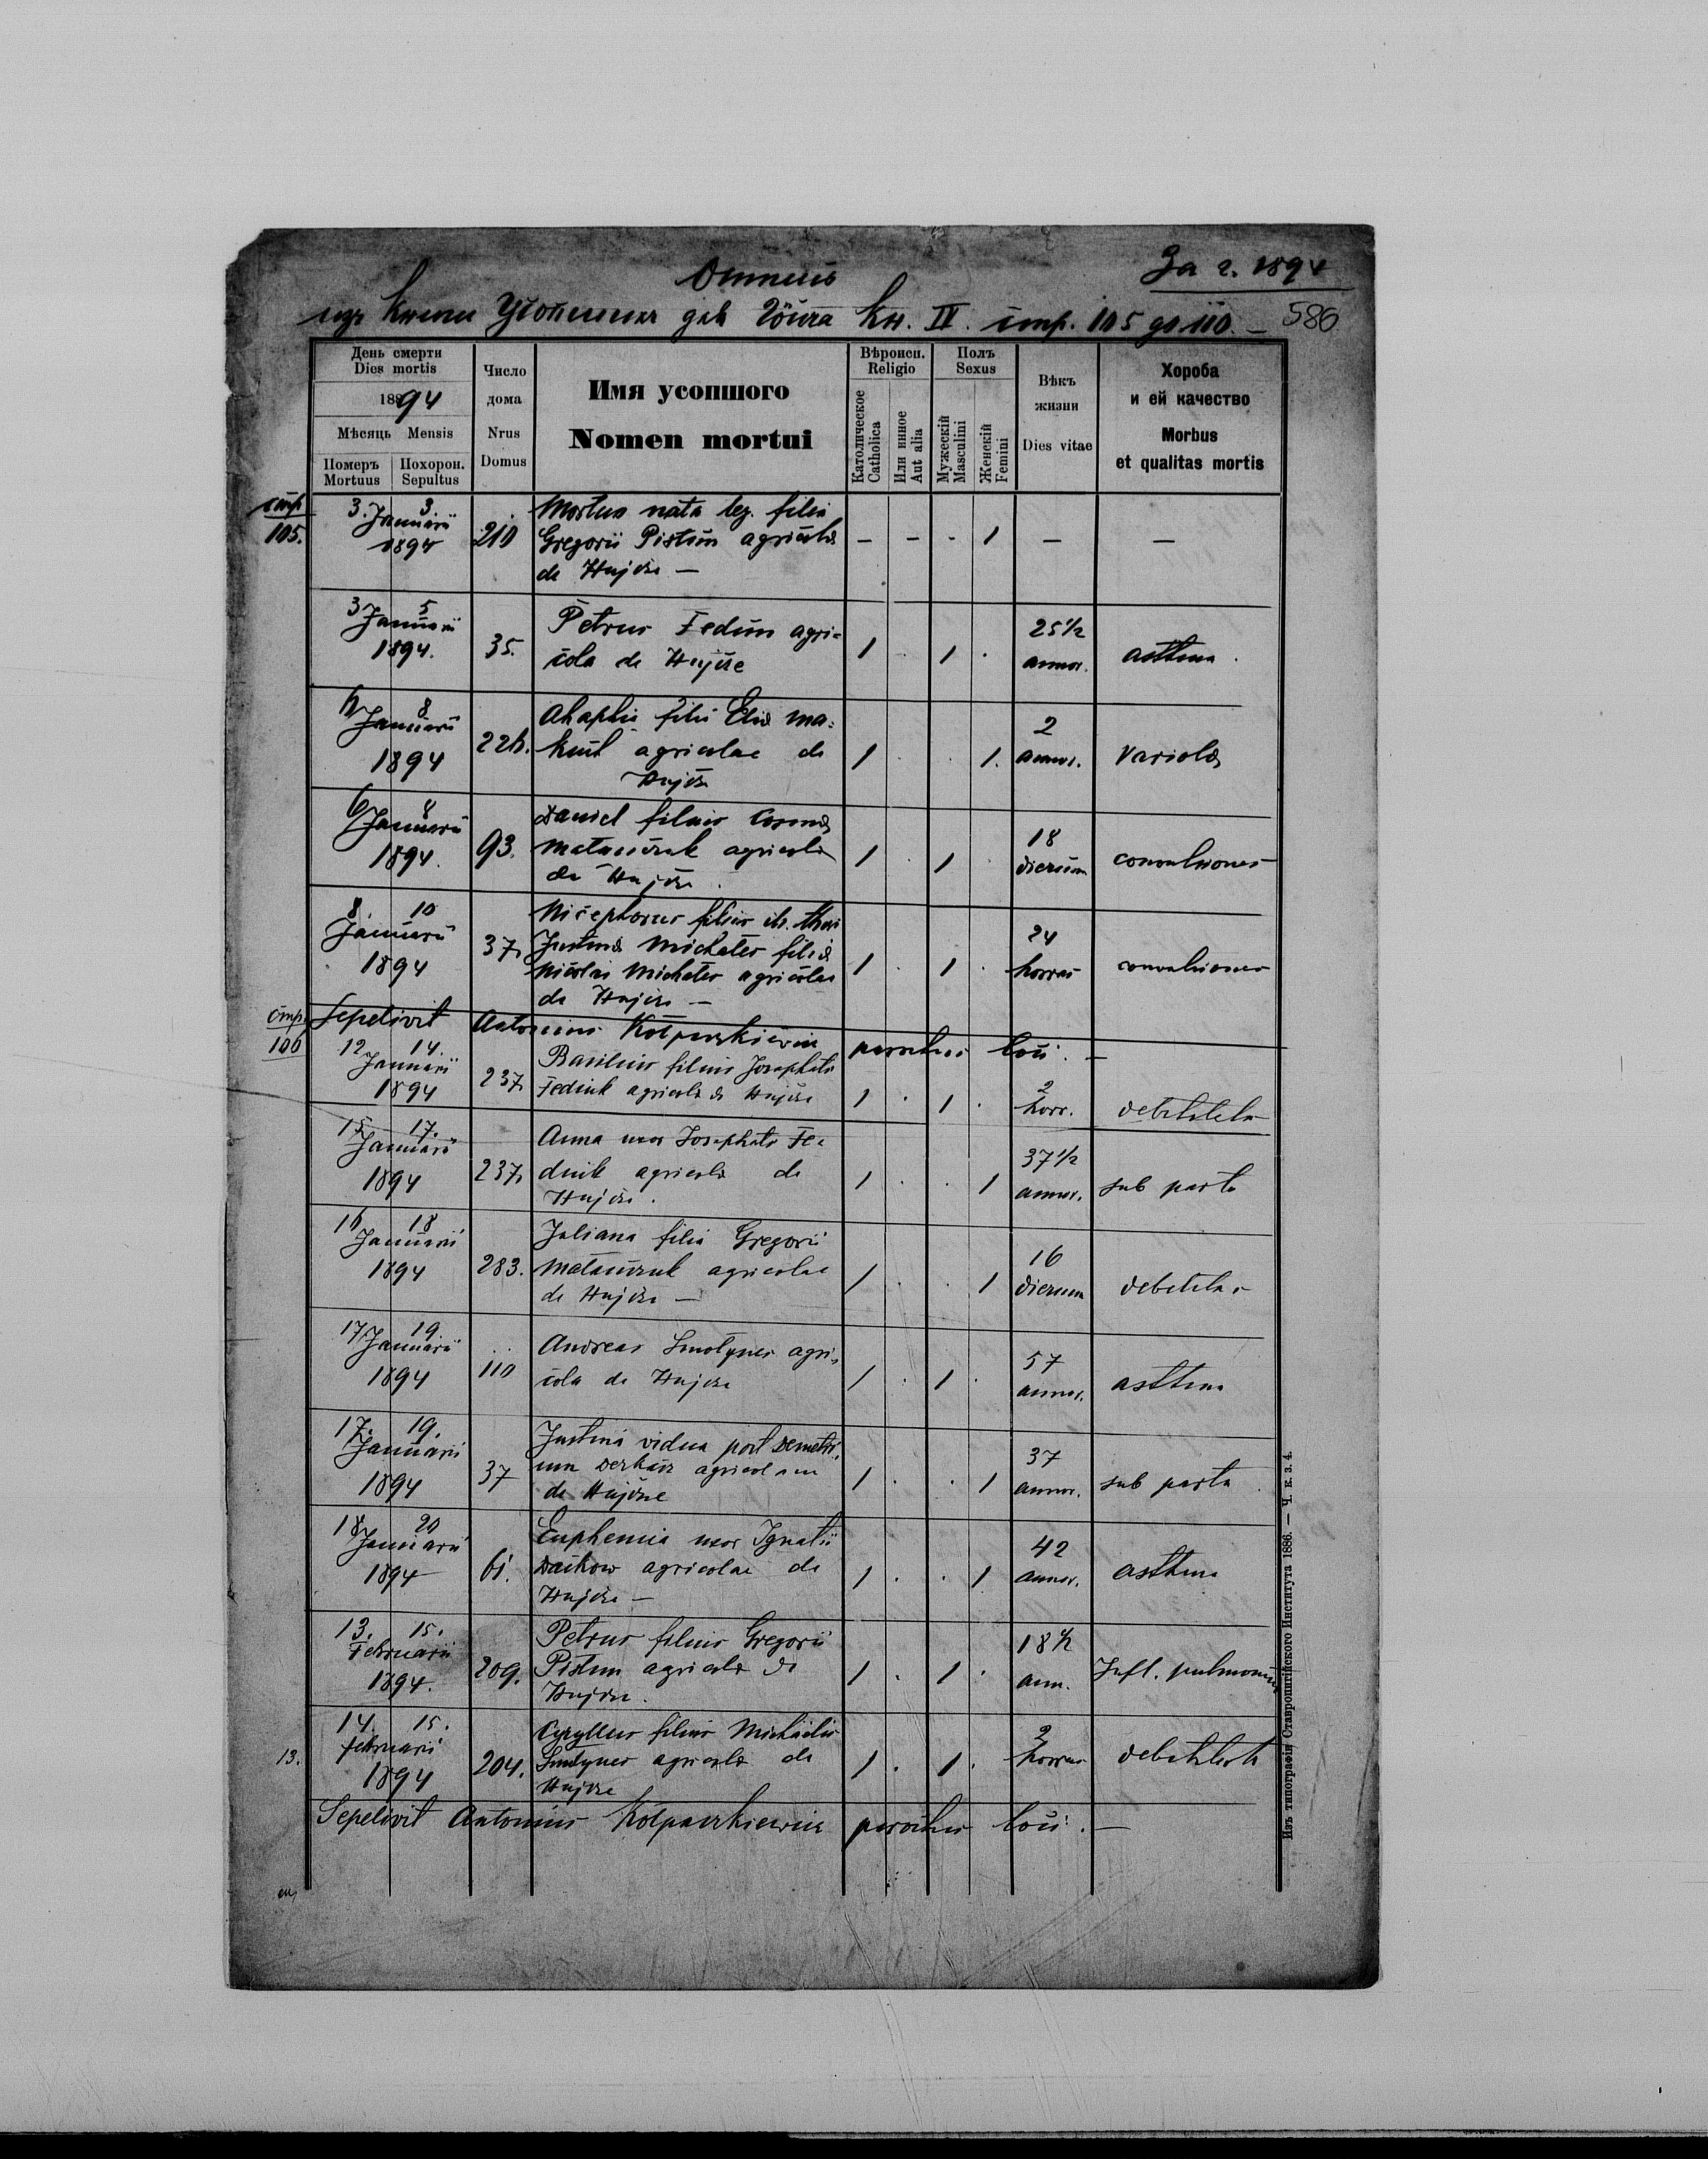 За г. 1894
586
изъ Книги Усопших для Гойча Кн. IV. стр. 105 до 110. —
День смерти
Dies mortis
1894
Мѣсяць Mensis
Померъ Mortuus
Похорон. Sepultus
Число дома
Nrus Domus
Имя усопшого
Nomen mortui
Вѣроисп.
Religio
Католическое Catholica
Или инное Aut alia
Полъ
Sexus
Мужескій Masculini
Женскій Femini
Вѣкъ жизни
Dies vitae
Хороба
и ей качество
Morbus
et qualitas mortis
стр. 105.
3. 3. Januarii 1894
210
Mortua nata leg. filia
Gregorii Pistun agricolae
de Hujcze —
— — - 1 — —
3 5 Januarii 1894.
35.
Petrus Fedun agri-
cola de Hujcze
1 . 1 .
25 1/2 annor.
asthma.
6 8 Januarii 1894
226.
Ahaphia filia Eliae Ma-
kuch agricolae de
Hujcze
1 . . 1.
2 annor.
variola
6 8 Januarii 1894.
93.
Daniel filius Cosmae
agricolae
de Hujcze.
1 . 1 .
18 dierum
convulsiones
8. 10 Januarii 1894
37.
Nicephorus filius ill. thori
Justinae filiae
Nicolai agricolae
de Hujcze —
1 . 1 .
24 horras
convulsiones
Sepelivit Antonius Kolpaczkiewicz parochus loci. —
стр. 106
12 14. Januarii 1894
237.
Basilius filius Josephati
Feduik agricolae de Hujcze
1 . 1 .
2 horr.
debilitas
15 17. Januarii 1894
237.
Anna uxor Josephati Fe-
duik agricolae de
Hujcze.
1 . . 1
37 1/2 annor.
sub partu
16 18 Januarii 1894
283.
Juliana filia Gregorii
agricolae
de Hujcze —
1 . . 1
16 dierum
debilitas
17 19 Januarii 1894
110
Andreas Smolynec agri-
cola de Hujcze
1 . 1 .
57 annor.
asthma
17. 19. Januarii 1894
37
Justina vidua post Demetri-
um Derkacz agricolam
de Hujcze
1 . . 1
37 annor.
sub partu
18 20 Januarii 1894
61.
Euphemia uxor Ignatii
agricolae de
Hujcze —
1 . . 1
42 annor.
asthma
13. 15. Februarii 1894.
209.
Petrus filius Gregorii
Pistun agricolae de
Hujcze.
1 . 1 .
18 1/2 ann.
Infl. pulmonum
13.
14. 15. februarii 1894
204.
Cyryllus filius Michaelis
Smolynec agricolae de
Hujcze
1 . 1 .
2 horras
debilitas
Sepelivit Antonius Kolpaczkiewicz parochus loci. —
Изъ типографіи Ставропигійского Института 1886. — Ч. к. з. 4.